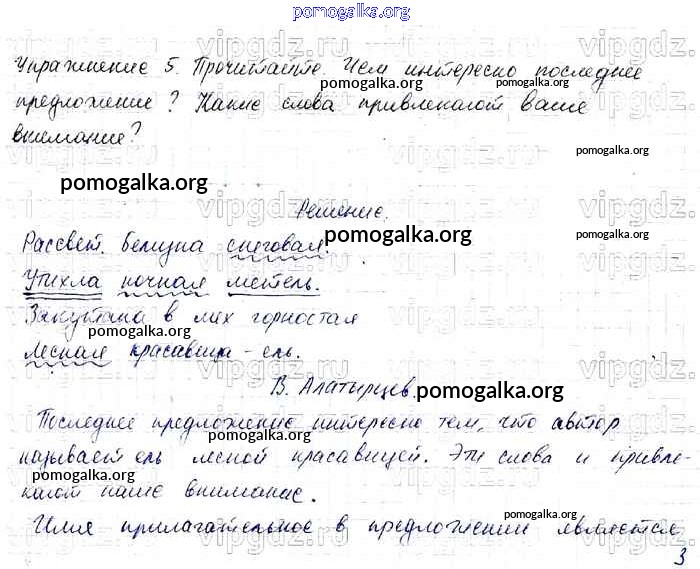 pomogalka.org
Упражнение 5. Прочитайте. Чем интересно последнее
предложение? Какие слова привлекают ваше
внимание?
pomogalka.org
pomogalka.org
pomogalka.org
Решение.
Рассвет. Белизна снеговая.
pomogalka.org
Утихла ночная метель.
Закутана в мех горностая
pomogalka.org
лесная красавица - ель.
pomogalka.org
В. Алатырцев.
pomogalka.org
Последнее предложение интересно тем, что автор
pomogalka.org
называет ель лесной красавицей. Эти слова и привле-
pomogalka.org
кают наше внимание.
pomogalka.org
Имя прилагательное в предложении является
pomogalka.org
3
vipgdz.ru